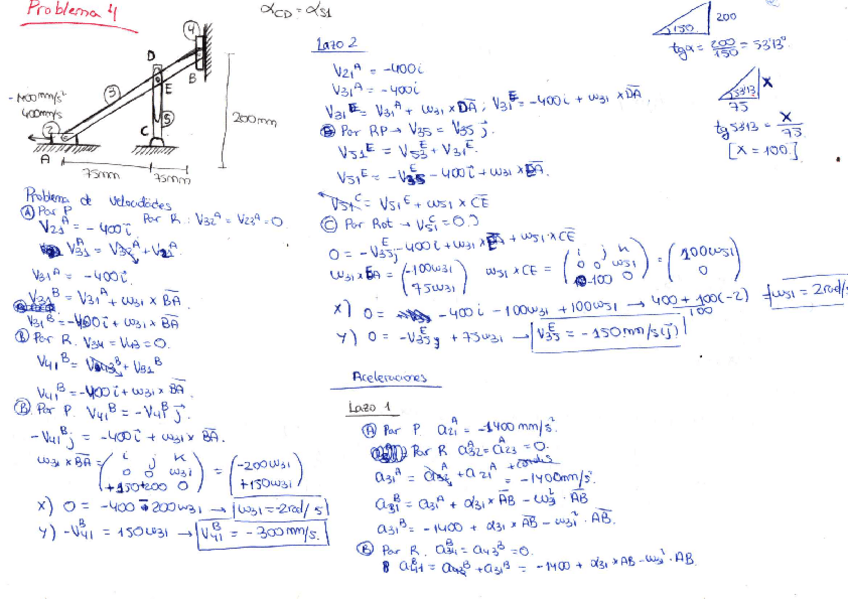 Problema 4
αCD = αS1
④
D
B
E
③
⑤
-1400mm/s²
400mm/s
②
C
A
75mm
75mm
200mm
Problema de velocidades
Ⓐ Por P
Por R: V32ᴬ = V23ᴬ = 0
V21ᴬ = -400i
V31ᴬ = V32ᴬ + V21ᴬ
V31ᴬ = -400i
V31ᴮ = V31ᴬ + ω31 × BA
V31ᴮ = -400i + ω31 × BA
Ⓑ Por R. V34 = V43 = 0.
V41ᴮ = V43ᴮ + V31ᴮ
V41ᴮ = -400i + ω31 × BA
Ⓑ Por P. V41ᴮ = -V41ᴮ j
-V41ᴮ j = -400i + ω31 × BA.
ω31 × BA = (i j k / 0 0 ω31 / +150 +200 0) = (-200ω31 / +150ω31)
x) 0 = -400 - 200ω31 → ω31 = -2rad/s
y) -V41ᴮ = 150ω31 → V41ᴮ = -300mm/s.
Lazo 2
V21ᴬ = -400i
V31ᴬ = -400i
V31ᴱ = V31ᴬ + ω31 × DA; V31ᴱ = -400i + ω31 × DA
Ⓔ Por RP → V35 = V35 j
V51ᴱ = V53ᴱ + V31ᴱ
V51ᴱ = -V35ᴱ - 400i + ω31 × EA.
V51ᶜ = V51ᴱ + ω51 × CE
Ⓒ Por Rot → V51ᶜ = 0.
0 = -V35ᴱj - 400i + ω31 × EA + ω51 × CE
ω31 × EA = (-100ω31 / 75ω31) ω51 × CE = (i j k / 0 0 ω51 / 0 -100 0) = (100ω51 / 0)
x) 0 = -400i - 100ω31 + 100ω51 → 400 + 100(-2) / 100 = ω51 = 2rad/s
y) 0 = -V35ᴱy + 75ω31 → V35ᴱ = -150mm/s(j)
Aceleraciones
Lazo 1
Ⓐ Por P. a21ᴬ = -1400mm/s²
Por R a32ᴬ = a23ᴬ = 0.
a31ᴬ = a32ᴬ + a21ᴬ + coriolis = -1400mm/s²
a31ᴮ = a31ᴬ + α31 × AB - ω31² · AB
a31ᴮ = -1400 + α31 × AB - ω31² · AB.
Ⓑ Por R. a34ᴮ = a43ᴮ = 0.
a41ᴮ = a43ᴮ + a31ᴮ = -1400 + α31 × AB - ω31² · AB.
200
150
tgα = 200/150 = 53'13º
53'13
x
75
tg 53'13 = x/75
[x = 100]